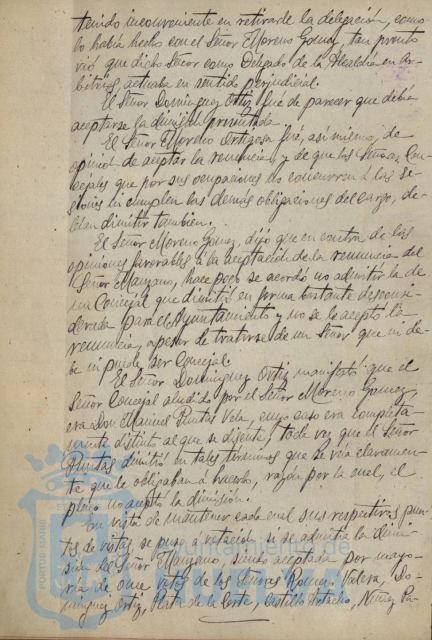 tenido inconveniente en retirarle la delegación, como
lo había hecho con el Señor Moreno Gomez, tan pronto
vió que dicho Señor como Delegado de la Alcaldia en Ar-
bitrios, actuaba en sentido perjudicial.
El Señor Dominguez Ortiz fué de parecer que debia
aceptarse la dimisión presentada.
El Señor Moreno Ortigosa fué, asi mismo, de
opinion de aceptar la renuncia y de que los Señores Con-
cejales que por sus ocupaciones no concurren a las se-
siones ni cumplen las demás obligaciones del cargo, de-
bian dimitir tambien.
El Señor Moreno Gomez, dijo que en contra de las
opiniones favorables á la aceptación de la renuncia del
Señor Manzano, hace poco se acordó no admitir la de
un Concejal que dimitió en forma bastante desconsi-
derada para el Ayuntamiento y no se le aceptó la
renuncia, apesar de tratarse de un Señor que ni de-
be ni puede ser Concejal.
El Señor Dominguez Ortiz manifestó que el
Señor Concejal aludido por el Señor Moreno Gomez,
era Don Manuel Puntas Vela, cuyo caso era completa-
mente distinto al que se discute, toda vez que el Señor
Puntas dimitió en tales términos que se veia claramen-
te que le obligaban a hacerlo, razón por la cual, el
pleno no aceptó la dimisión.
En vista de mantener cada cual sus respectivos pun-
tos de vistas, se puso a votación si se admitia la dimi-
sión del Señor Manzano, siendo aceptada por mayo-
ria de once votos de los Señores Romero Valera, Do-
minguez Ortiz, Prat de la Corte, Castillo Estacho, Nuñez Pa-
Ayuntamiento de